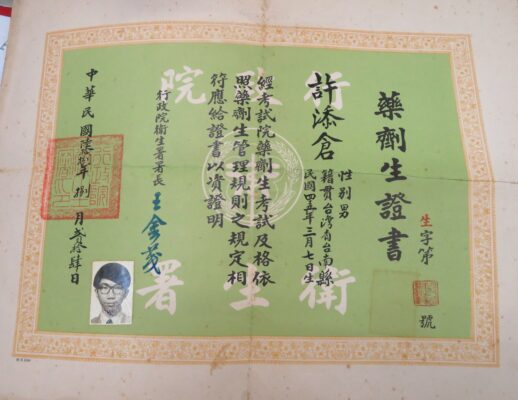 藥劑生證書
生字第
號
許添倉
性別男
籍貫台灣省台南縣
民國四五年三月七日生
經考試院藥劑生考試及格依
照藥劑生管理規則之規定相
符應給證書以資證明
行政院衛生署署長
王金茂
中華民國
年捌月貳拾肆日
院政
署生衛